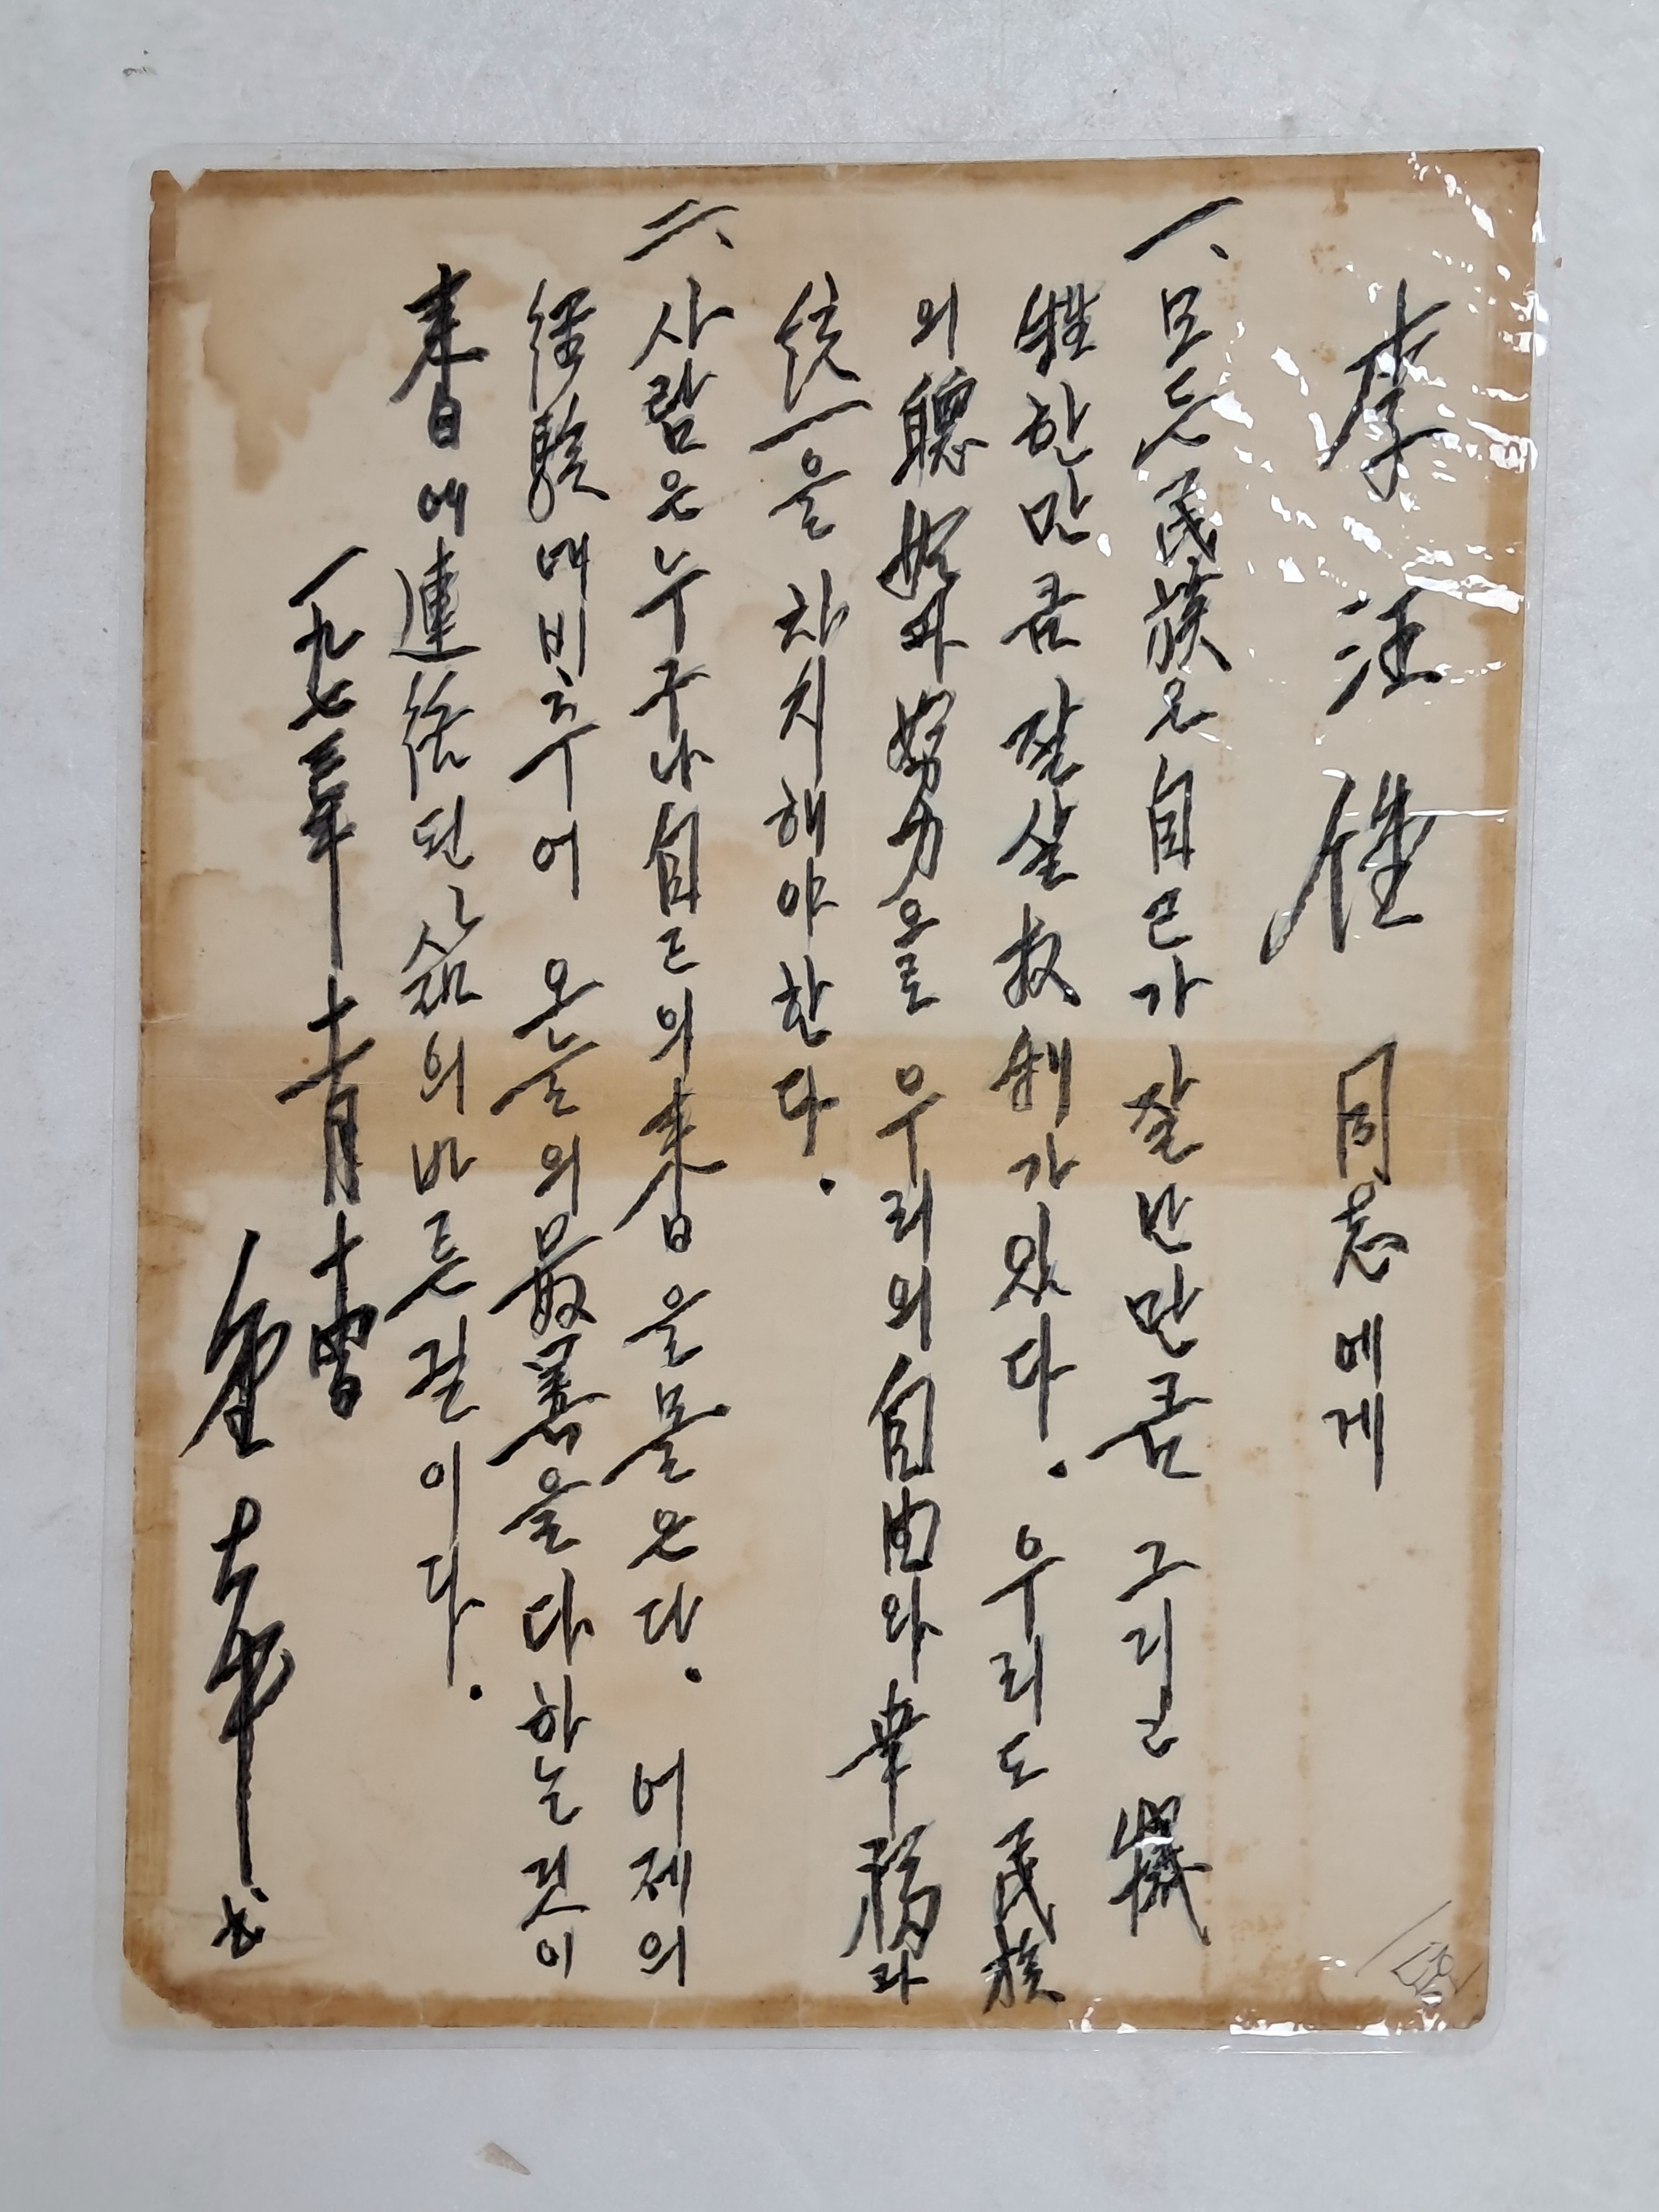 李 汪 同志에게
一、모든 民族은 自己가 잘난만큼 그리고 犧
牲한만큼 잘살 权利가 있다. 우리도 民族
의 과 努力으로 우리의 自由와 幸福과
統一을 차지해야한다.
二、사람은 누구나 自己의 来日을 몰은다. 어제의
经驗에 비추어 오늘의 最善을 다하는것이
来日에 連络된 삶의 바른길이다.
一九七三年 十一月
金 大中 书